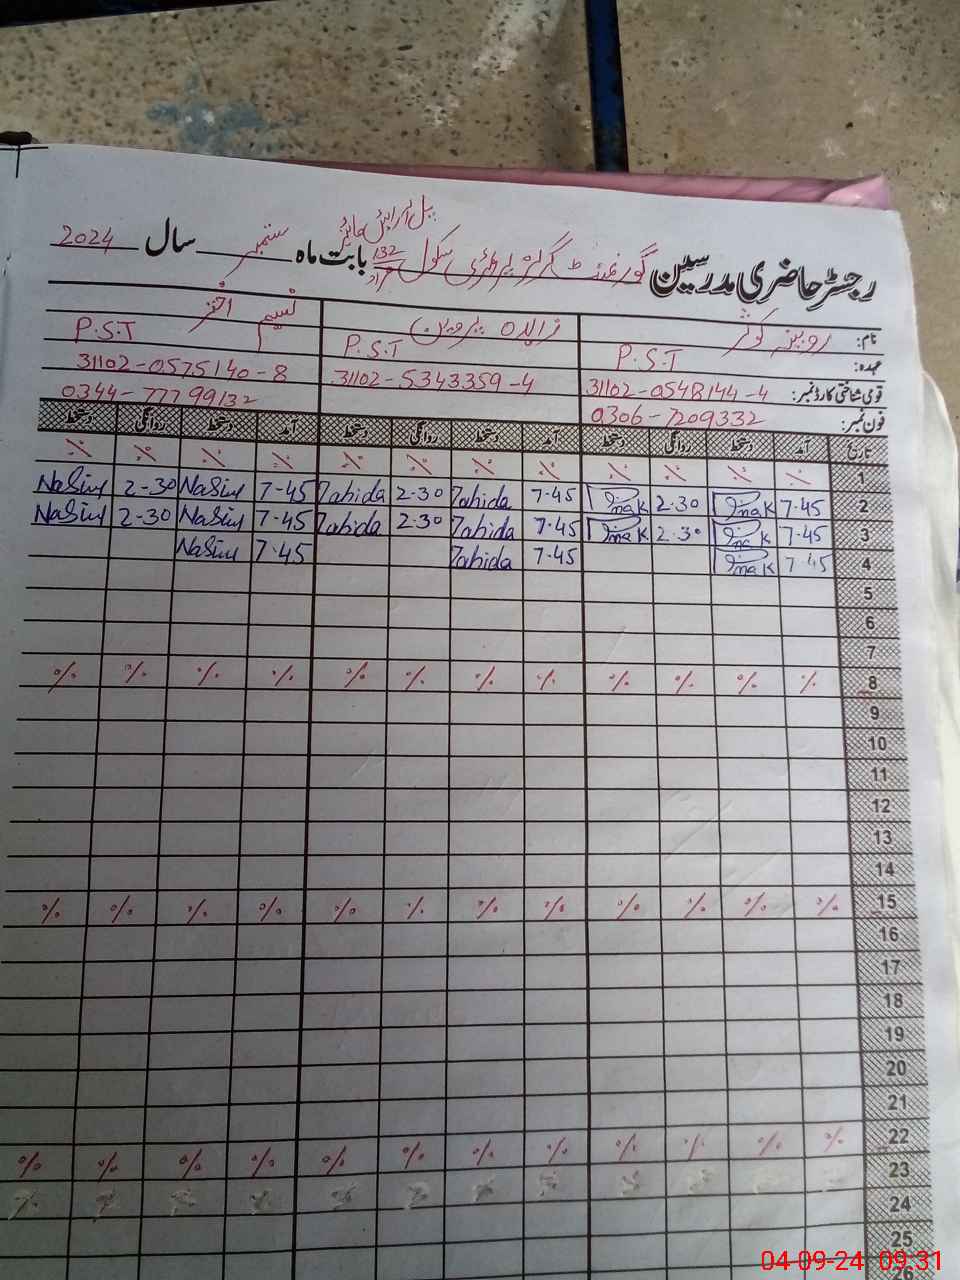 رجسٹر حاضری مدرسین گورنمنٹ گرلز پرائمری سکول 132 مراد بابت ماہ ستمبر سال 2024
نام: روبینہ کوثر زاہدہ پروین نسیم اختر
عہدہ: P.S.T P.S.T P.S.T
قومی شناختی کارڈ نمبر: 31102-0548144-4 31102-5343359-4 31102-0575140-8
فون نمبر: 0306-7209332 0344-77799132
تاریخ آمد دستخط روانگی دستخط آمد دستخط روانگی دستخط آمد دستخط روانگی دستخط
1 % % % % % % % % % % % %
2 7-45 2-30 7-45 Zahida 2-30 Zahida 7-45 Nasim 2-30 Nasim
3 7-45 2-30 7-45 Zahida 2-30 Zahida 7-45 Nasim 2-30 Nasim
4 7-45 7-45 Zahida 7-45 Nasim
5
6
7
8 % % % % % % % % % % % %
9
10
11
12
13
14
15 % % % % % % % % % % % %
16
17
18
19
20
21
22 % % % % % % % % % % % %
23
24
25
26
04-09-24 09:31